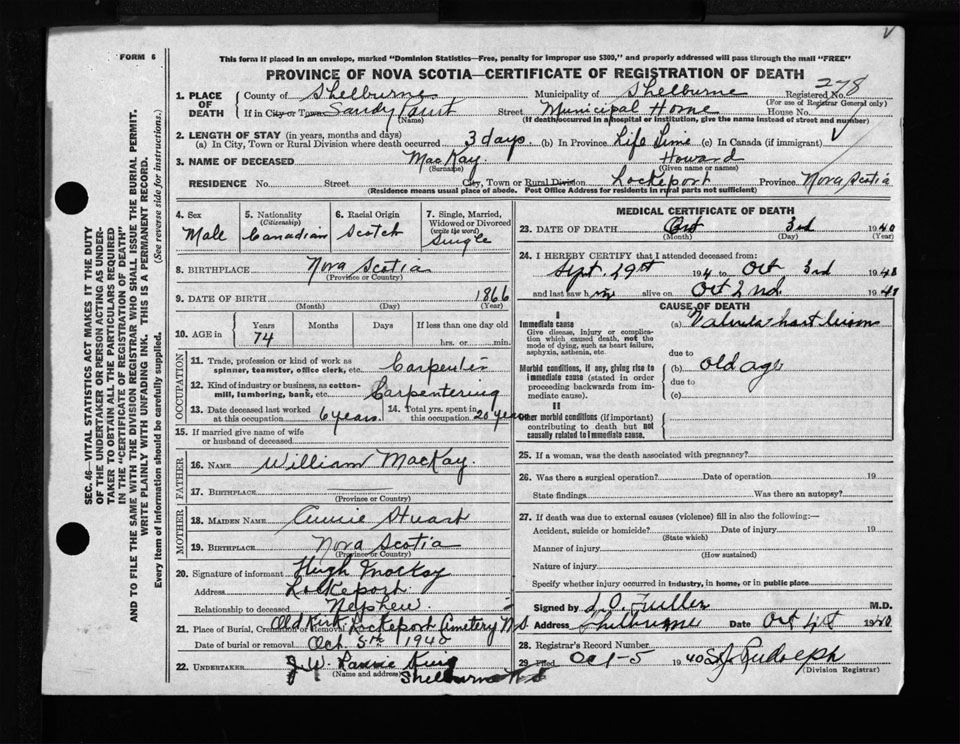 FORM 6
This form if placed in an envelope, marked "Dominion Statistics—Free, penalty for improper use $300," and properly addressed will pass through the mail "FREE"
PROVINCE OF NOVA SCOTIA—CERTIFICATE OF REGISTRATION OF DEATH
278
1. PLACE OF DEATH County of Shelburne Municipality of Shelburne Registered No.
(For use of Registrar General only)
If in City or Town Sandy Point Street Municipal Home House No.
(Name) (If death occurred in a hospital or institution, give the name instead of street and number)
2. LENGTH OF STAY (in years, months and days)
(a) In City, Town or Rural Division where death occurred 3 days. (b) In Province Life Time (c) In Canada (if immigrant)
3. NAME OF DECEASED MacKay Howard
(Surname) (Given name or names)
RESIDENCE No. Street City, Town or Rural Division Lockeport Province Nova Scotia
(Residence means usual place of abode. Post Office Address for residents in rural parts not sufficient)
4. Sex Male
5. Nationality (Citizenship) Canadian
6. Racial Origin Scotch
7. Single, Married, Widowed or Divorced (write the word) Single
8. BIRTHPLACE Nova Scotia
(Province or Country)
9. DATE OF BIRTH 1866
(Month) (Day) (Year)
10. AGE in Years Months Days If less than one day old
74 hrs. or min.
OCCUPATION
11. Trade, profession or kind of work as spinner, teamster, office clerk, etc. Carpenter
12. Kind of industry or business, as cotton-mill, lumbering, bank, etc. Carpentering
13. Date deceased last worked at this occupation 6 years. 14. Total yrs. spent in this occupation 20 years
15. If married give name of wife or husband of deceased
FATHER
16. NAME William MacKay
17. BIRTHPLACE
(Province or Country)
MOTHER
18. MAIDEN NAME Annie Stuart
19. BIRTHPLACE Nova Scotia
(Province or Country)
20. Signature of informant Hugh Mackay
Address Lockeport
Relationship to deceased Nephew
21. Place of Burial, Cremation or Removal Old Kirk Lockeport Cemetery N S
Date of burial or removal Oct. 5th 1940
22. UNDERTAKER J. W. King
(Name and address) Shelburne N S
MEDICAL CERTIFICATE OF DEATH
23. DATE OF DEATH Oct 3rd 1940
(Month) (Day) (Year)
24. I HEREBY CERTIFY that I attended deceased from:
Sept. 29st 194 to Oct 3rd 1940
and last saw him alive on Oct 2nd 1940
CAUSE OF DEATH
I
Immediate cause (a) Valvular heart lesion
Give disease, injury or complication which caused death, not the mode of dying, such as heart failure, asphyxia, asthenia, etc.
due to
Morbid conditions, if any, giving rise to immediate cause (stated in order proceeding backwards from immediate cause). (b) old age
due to
(c)
II
Other morbid conditions (if important) contributing to death but not causally related to immediate cause.
25. If a woman, was the death associated with pregnancy?
26. Was there a surgical operation? Date of operation 19
State findings Was there an autopsy?
27. If death was due to external causes (violence) fill in also the following:—
Accident, suicide or homicide? Date of injury 19
(State which)
Manner of injury
(How sustained)
Nature of injury
Specify whether injury occurred in industry, in home, or in public place
Signed by L. O. Fuller M.D.
Address Shelburne Date Oct 4th 1940
28. Registrar's Record Number
29. Filed Oct-5 1940 Rudolph
(Division Registrar)
SEC. 46—VITAL STATISTICS ACT MAKES IT THE DUTY
OF THE UNDERTAKER OR PERSON ACTING AS UNDER-
TAKER TO OBTAIN ALL THE PARTICULARS REQUIRED
IN THE "CERTIFICATE OF REGISTRATION OF DEATH"
AND TO FILE THE SAME WITH THE DIVISION REGISTRAR WHO SHALL ISSUE THE BURIAL PERMIT.
WRITE PLAINLY WITH UNFADING INK. THIS IS A PERMANENT RECORD.
Every item of information should be carefully supplied. (See reverse side for instructions.)